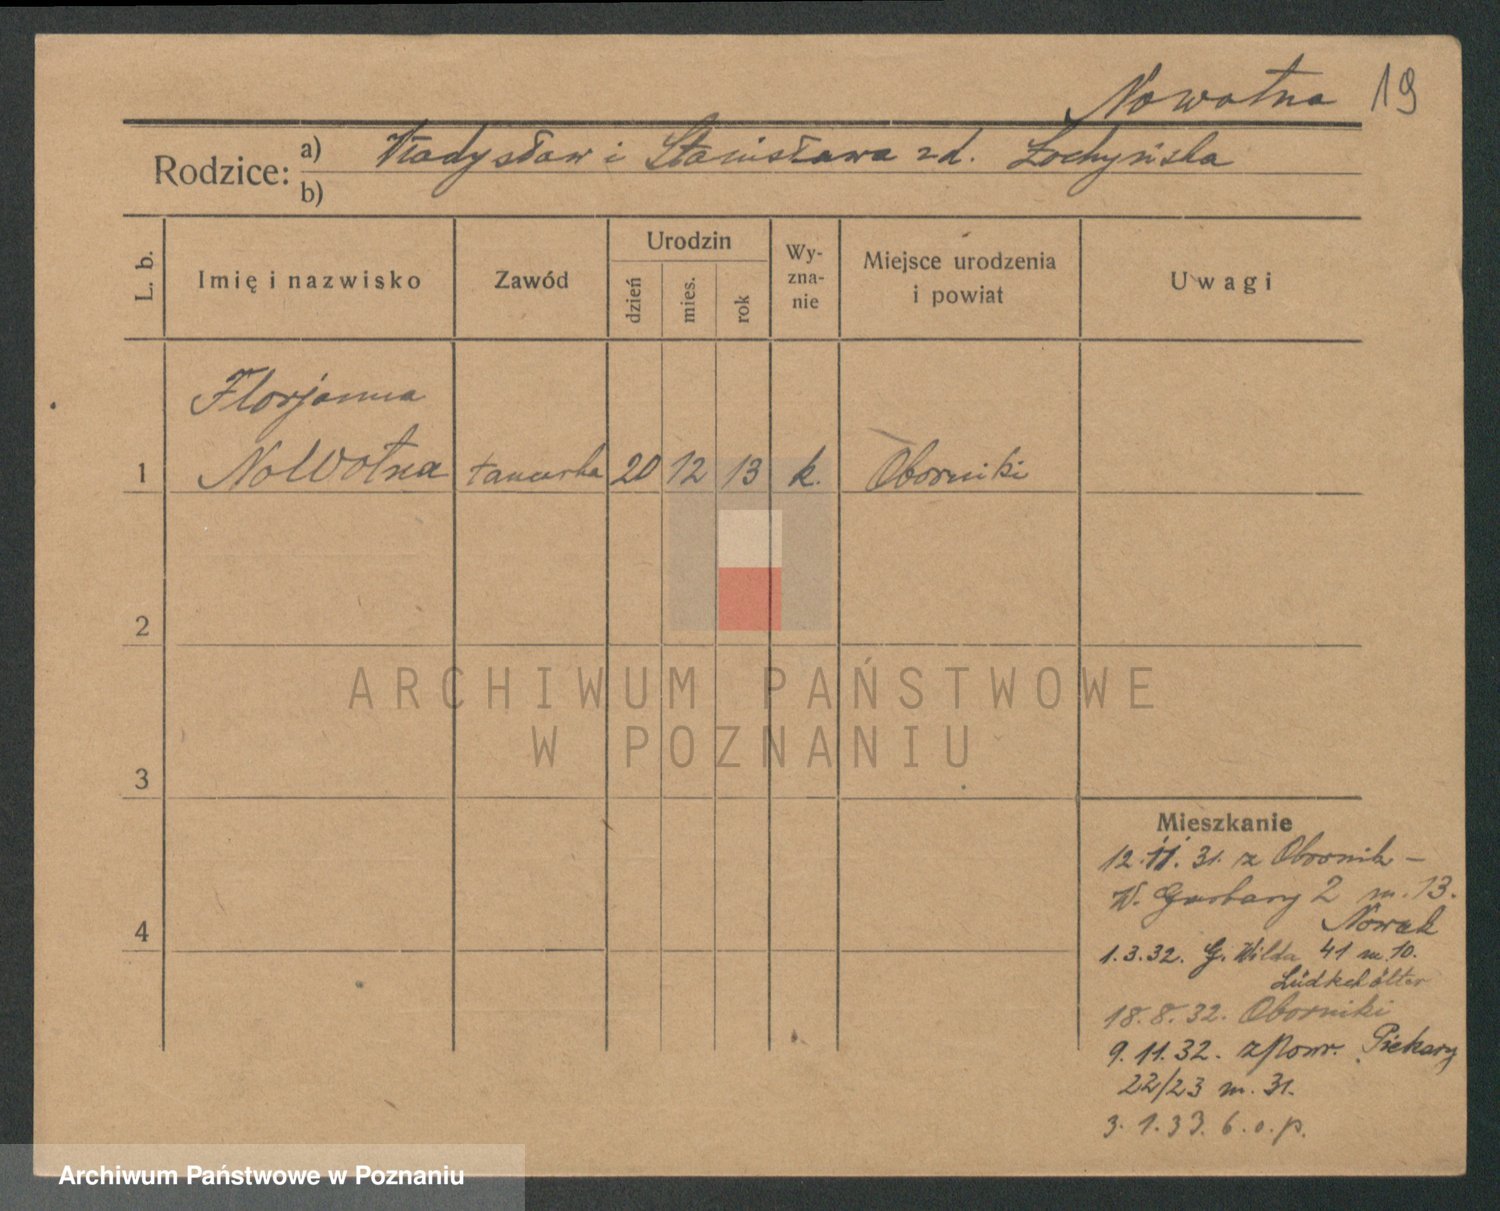 Nowotna 19
Rodzice: a) Władysław i Stanisława zd. Żochyńska
b)
L. b.
Imię i nazwisko
Zawód
Urodzin
dzień
mies.
rok
Wy-
zna-
nie
Miejsce urodzenia
i powiat
Uwagi
Florjanna
1 Nowotna 20 12 13 k. Oborniki
2
3
4
Mieszkanie
12.11.31. z Obornik –
W. Garbary 2 m. 13.
Nowak
1.3.32. G. Wilda 41 m. 10.
Lüdkehölter
18.8.32. Oborniki
9.11.32. z powr. Piekary
22/23 m. 31.
3.1.33. b.o.p.
ARCHIWUM PAŃSTWOWE
W POZNANIU
Archiwum Państwowe w Poznaniu